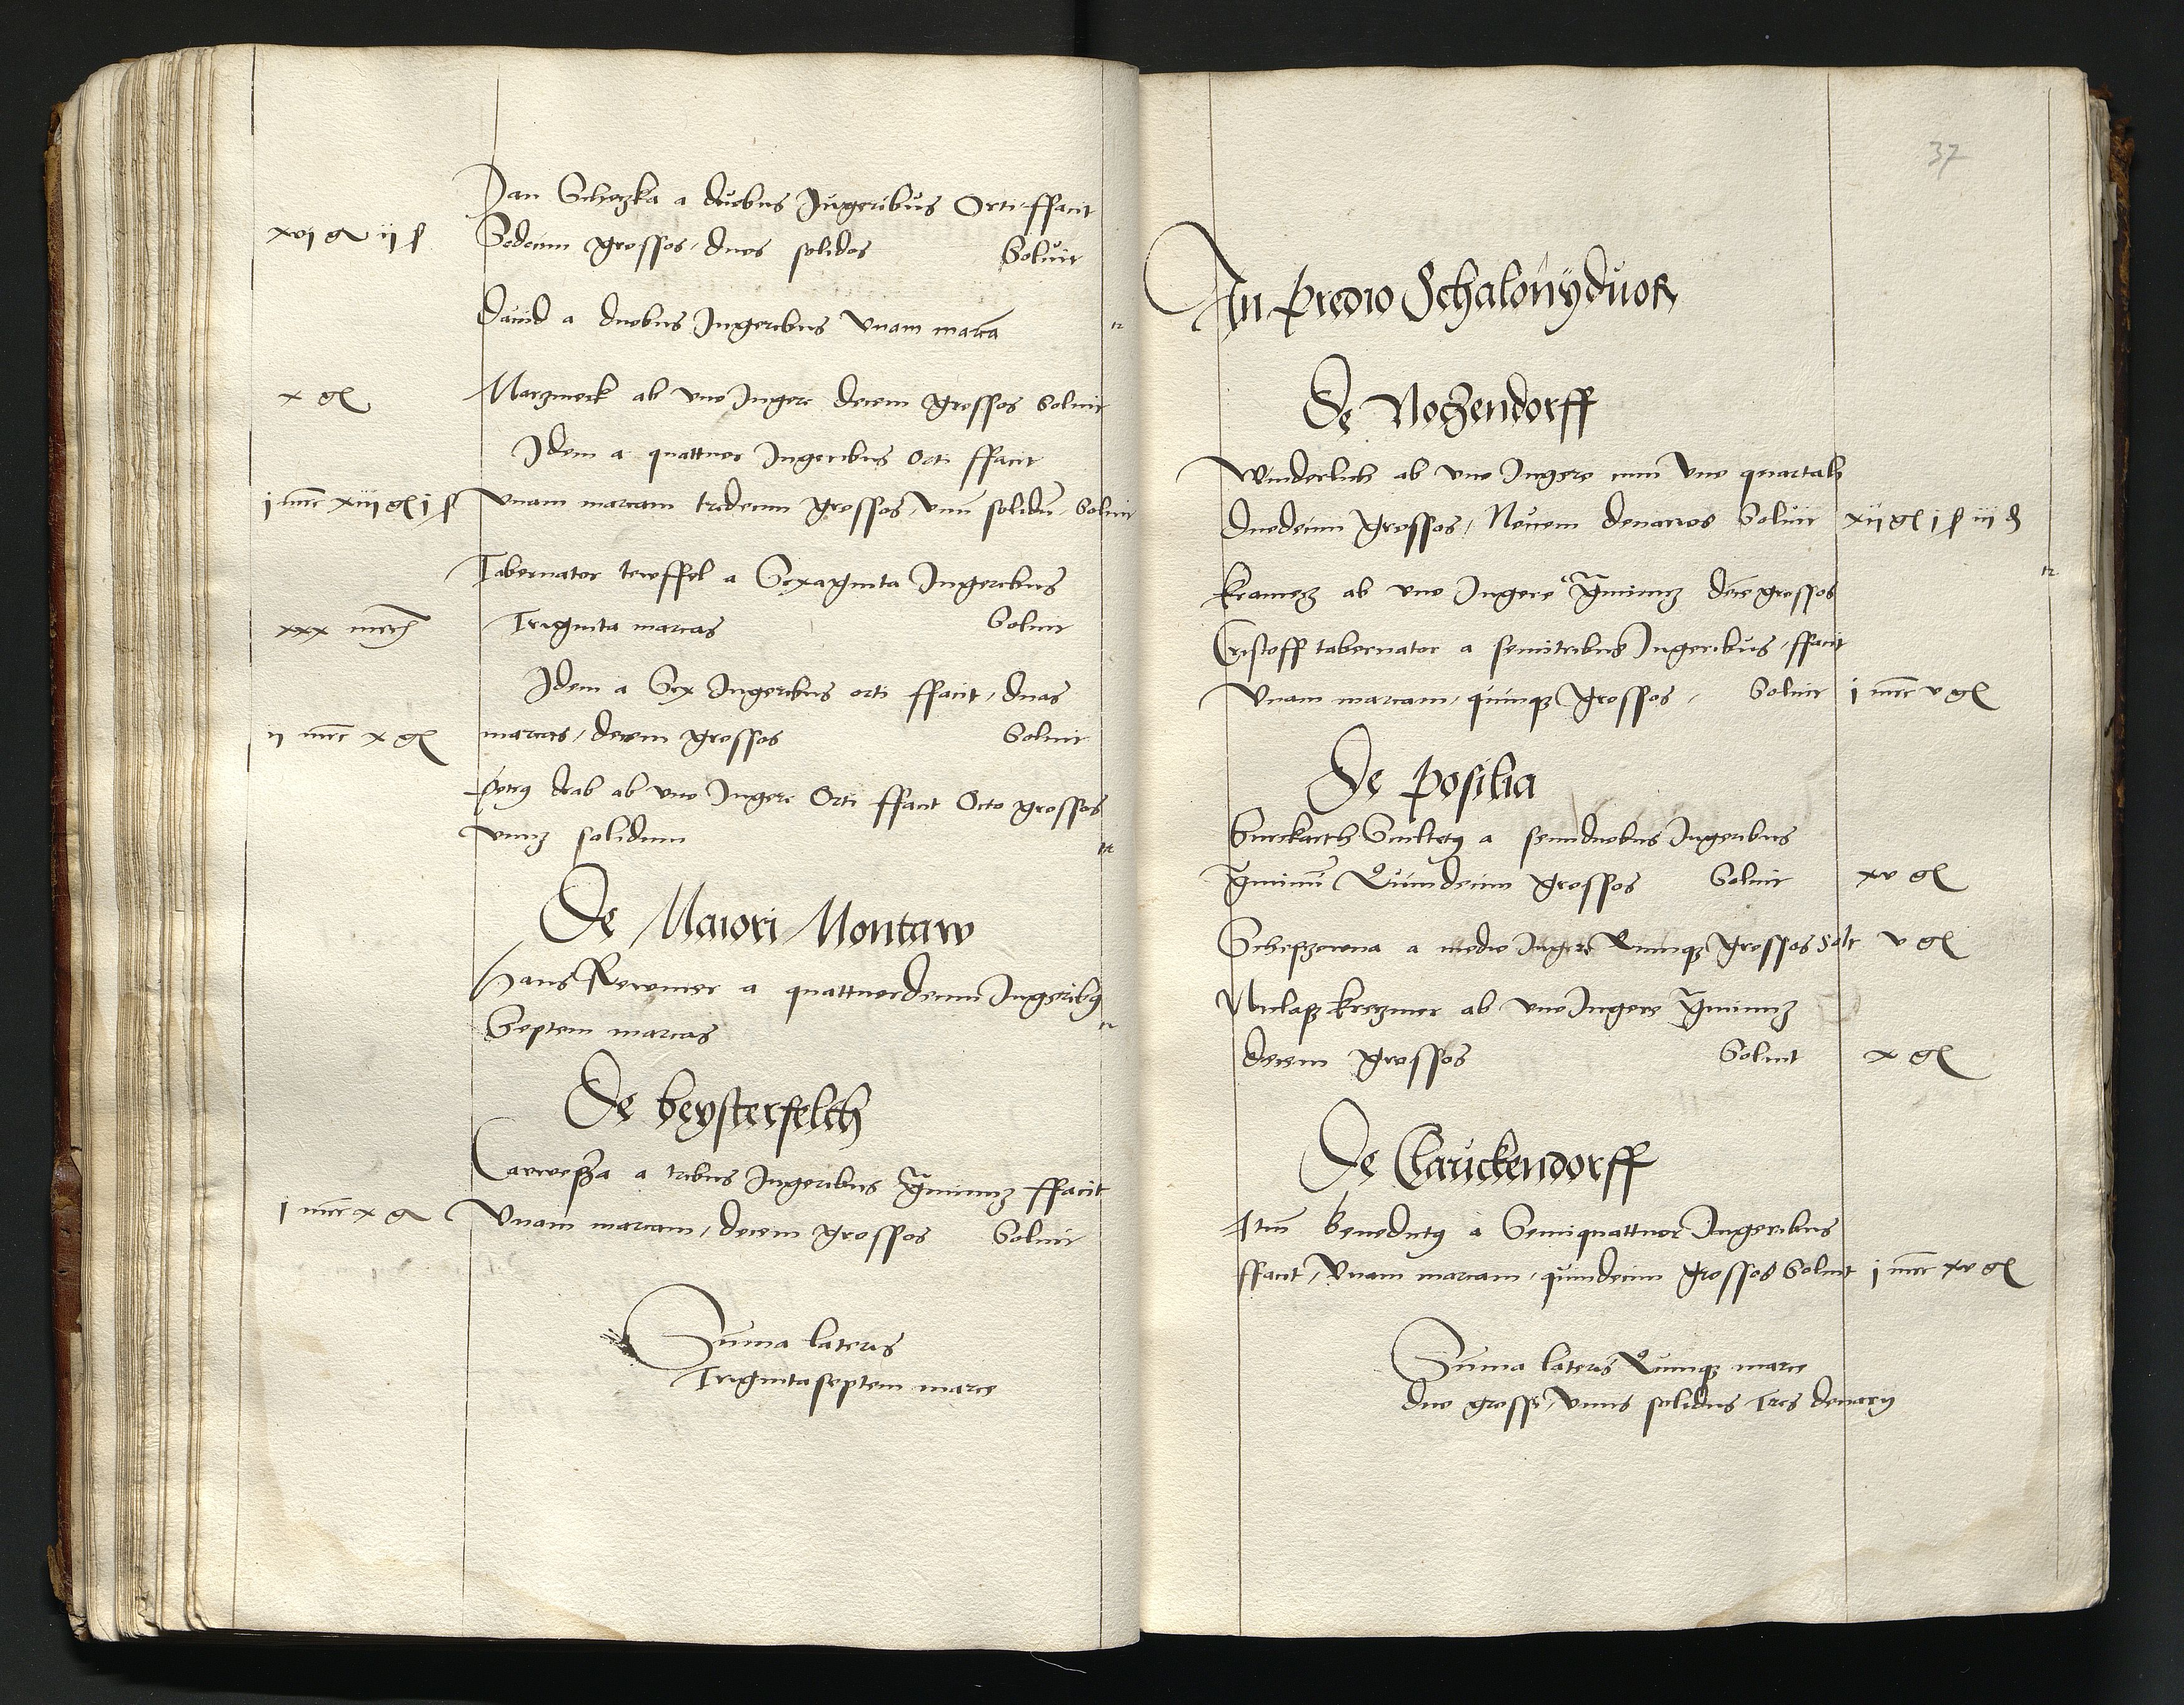 Jan Schozka a duobus Jugeribus Orti ffacit
xvj g ij s Sedecim grossos, duos solidos Soluit
Dauid a duobus Jugeribus vnam marca
x gl Marzineck ab vno Jugere decem grossos Soluit
Idem a quattuor Jugeribus orti ffacit
j mrc xiij gl j s vnam marcam tredecim grossos, vnu solidu Soluit
Tabernator tewffel a Sexaginta Jugeribus
xxx mrc Triginta marcas Soluit
Idem a Sex Jugeribus orti ffacit, duas
ij mrc x gl marcas, decem grossos Soluit
petrus drab ab vno Jugere Orti ffacit Octo grossos
vnum solidum
De Maiori Montaw
Hans Rewmer a quattuordecim Jugeribus
Septem marcas
De beysterfelth
Carweßa a tribus Jugeribus graminum ffacit
j mrc x g Vnam marcam, decem grossos Soluit
Suma lateris
Triginta septem marce
37
In predio Schalonyduor
De Nozendorff
Winderlich ab vno Jugere cum vno quartali
duodecim grossos, Nouem denarios Soluit xij gl j s iij d
kramerz ab vno Jugere graminum dece grossos
Cristoff tabernator a semitribus Jugeribus, ffacit
Vnam marcam, quinque grossos, Soluit j mrc v gl
De posilia
Burckarth Scultetus a semiduobus Jugeribus
graminu Quindecim grossos Soluit xv gl
a medio Jugere Quinque grossos Solt v gl
Niclaß krezmer ab vno Jugere graminum
decem grossos Soluit x gl
De Clauckendorff
Item benedictus a Semiquattuor Jugeribus
ffacit, Vnam marcam, quindecim grossos Soluit j mrc xv gl
Suma lateris Quinque marce
duo grossi, vnus solidus Tres denarij